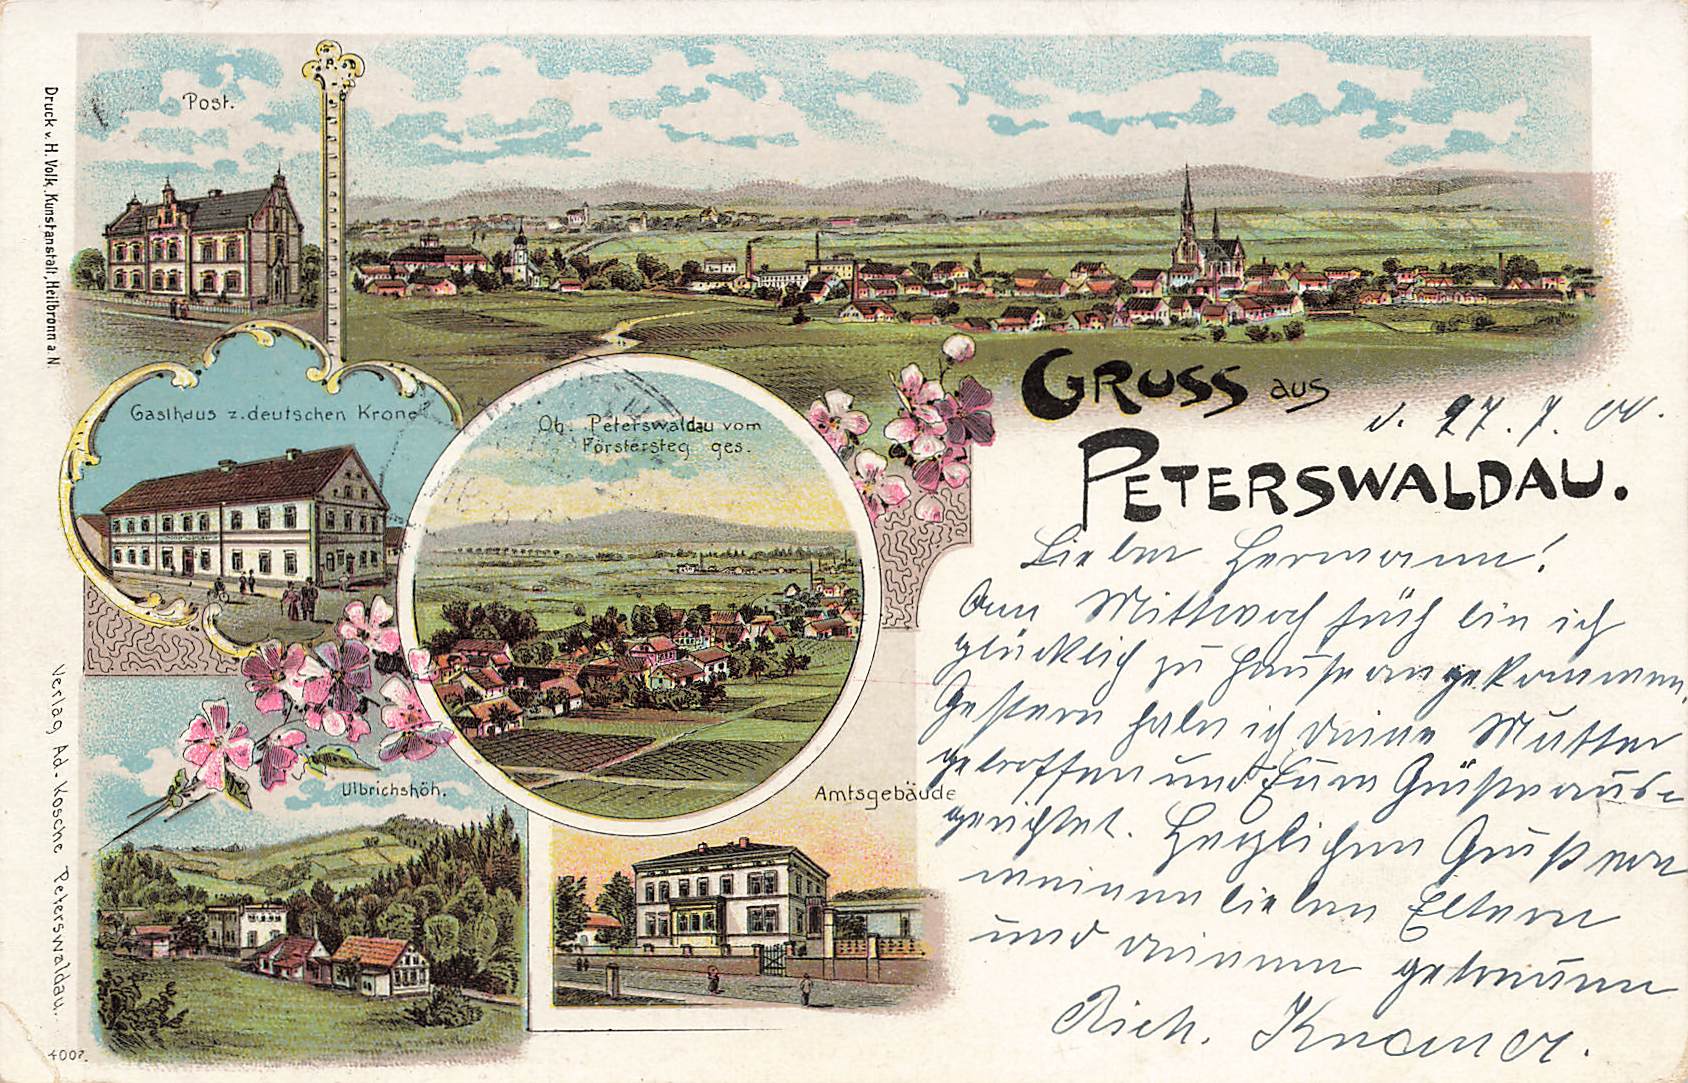 Post.
Druck v. H. Volk, Kunstanstalt, Heilbronn a. N
Gasthaus z. deutschen Krone
Ob. Peterswaldau vom
Förstersteg ges.
GRUSS aus
PETERSWALDAU.
d. 27. 7. 00.
Lieber Hermann!
Am Mittwoch früh bin ich
glücklich zu Hause angekommen,
Gestern habe ich deine Mutter
getroffen und Eure Grüße ausge-
gerichtet. Herzlichen Gruß von
meinen lieben Eltern
und deinem getreuen
Rich.
Ulbrichshöh.
Amtsgebäude
Verlag Ad. Kosche Peterswaldau.
4007.